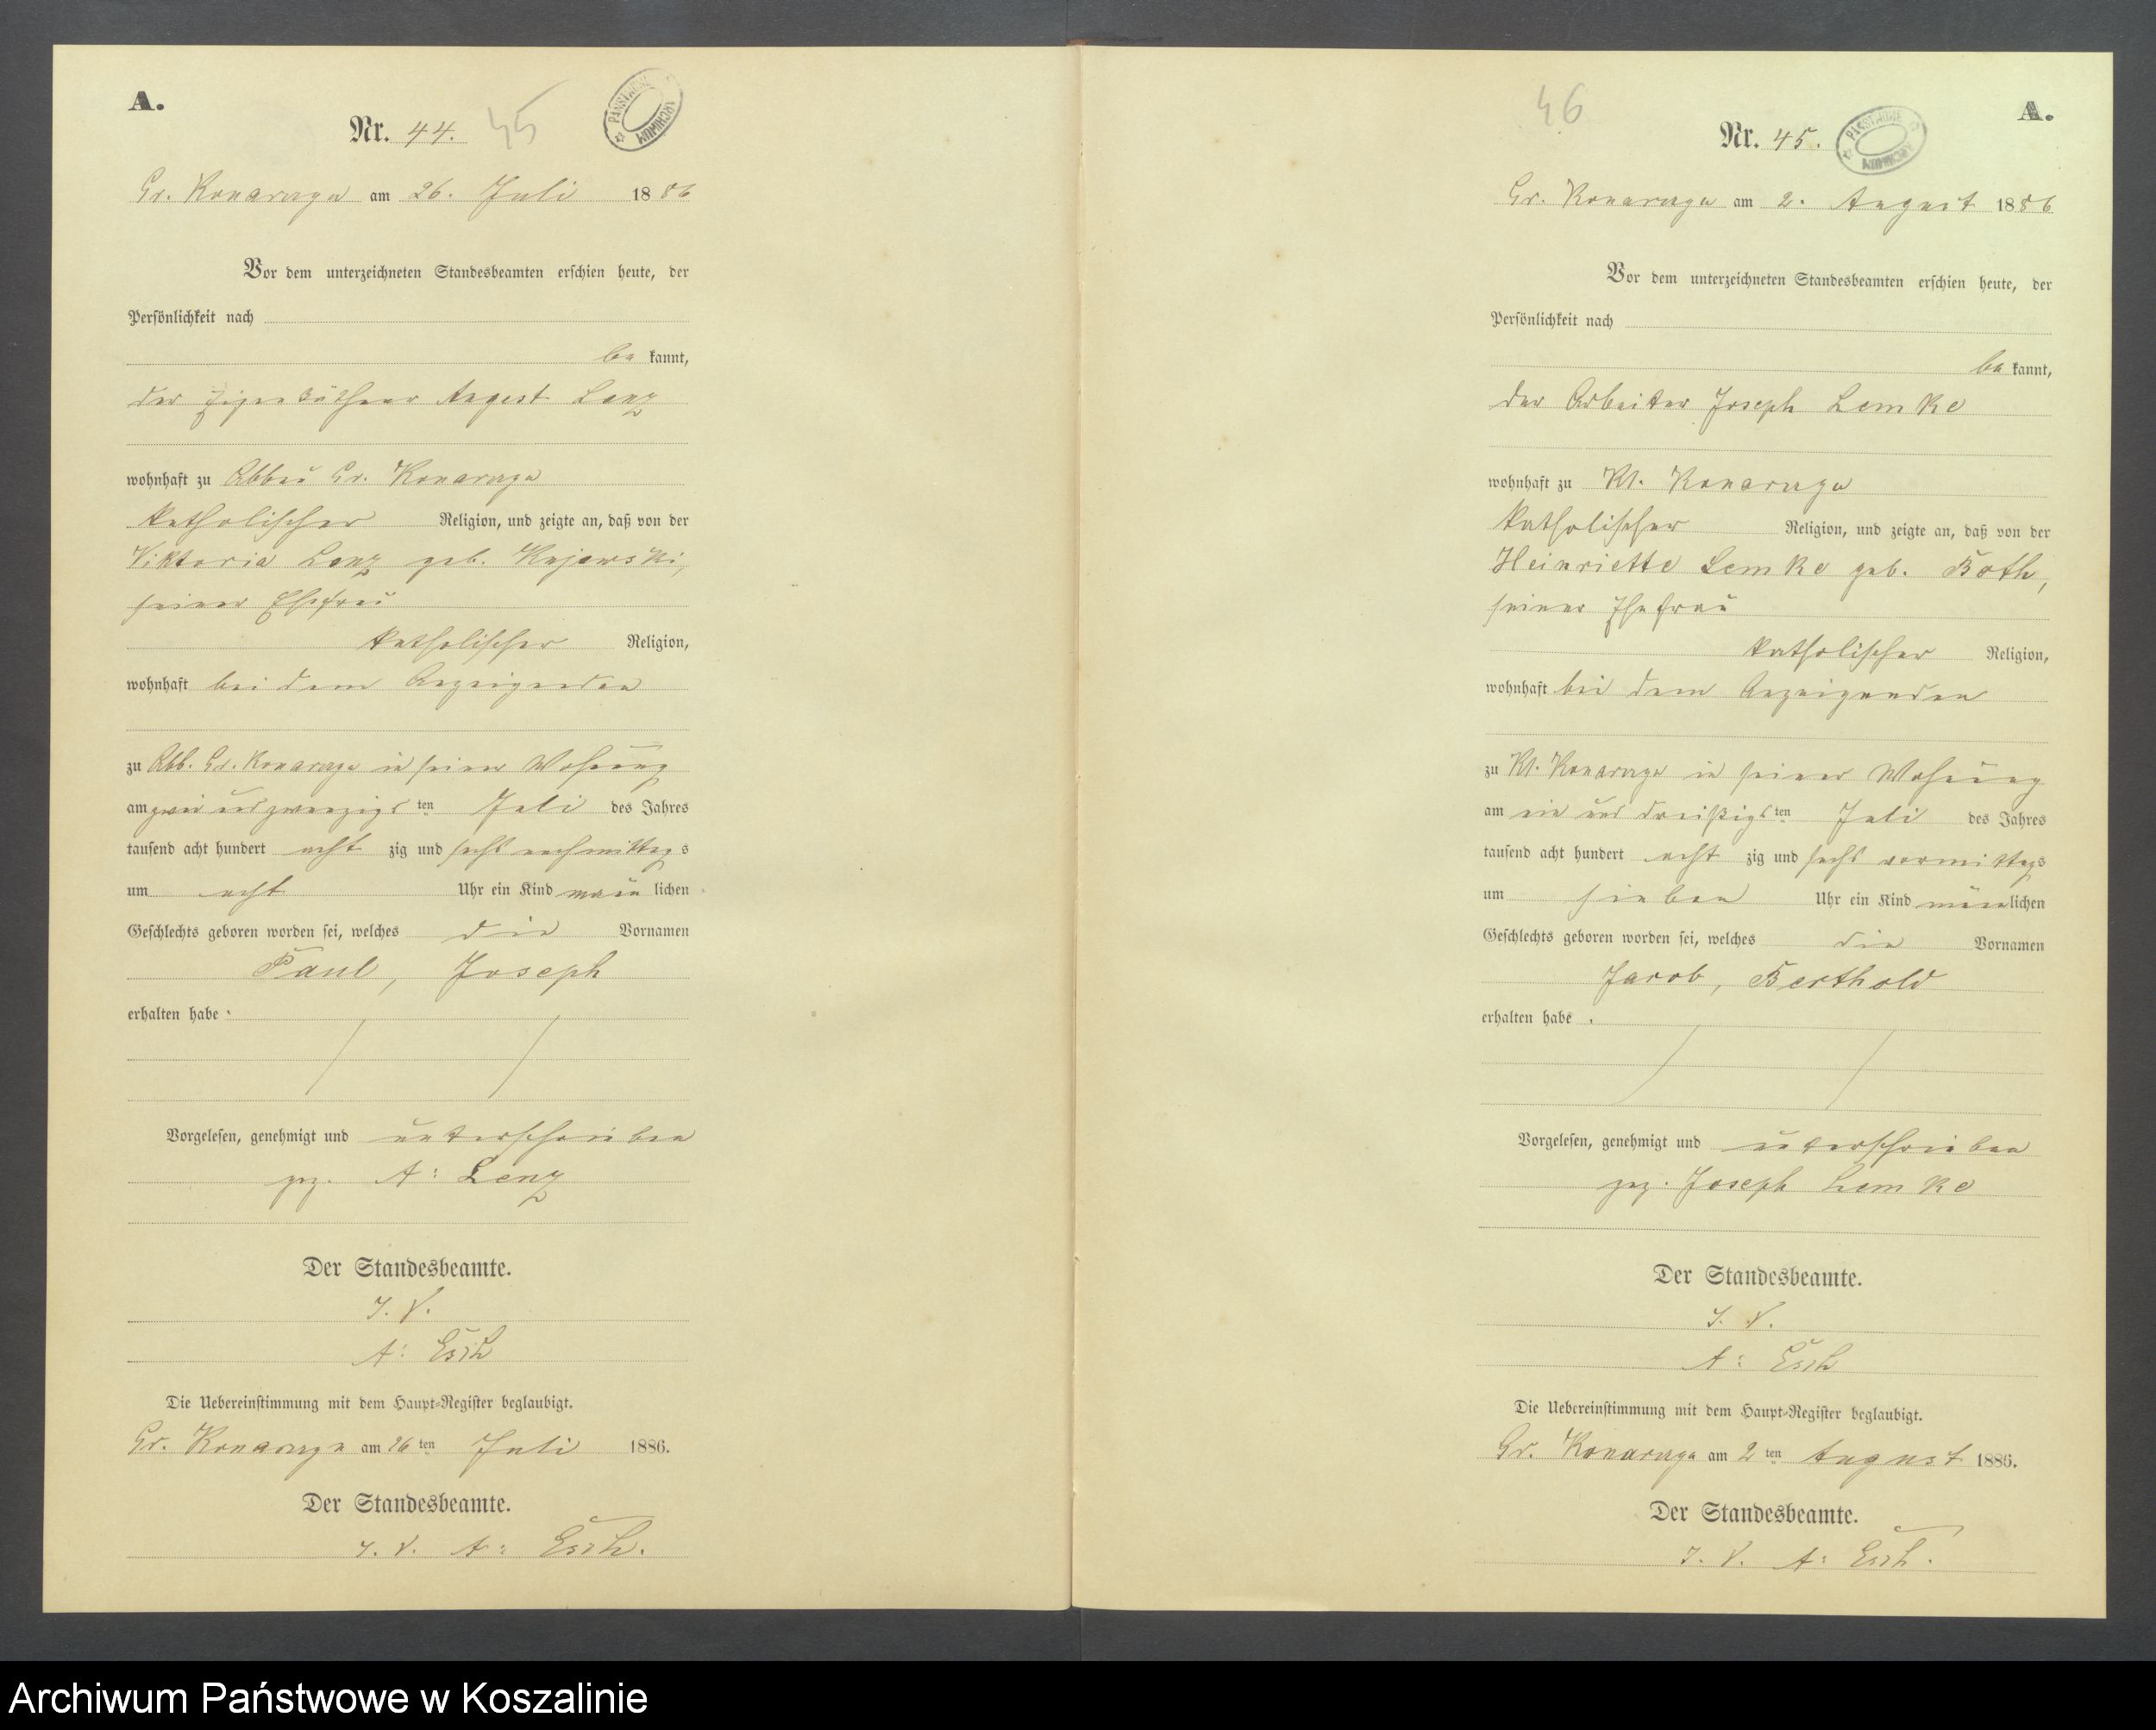 A.
Nr. 44.
45
PAŃSTWOWE ARCHIWUM
Gr. Konarczyn am 26. Juli 1886
Vor dem unterzeichneten Standesbeamten erschien heute, der
Persönlichkeit nach
be kannt,
der Eigenthümer August Lenz
wohnhaft zu Abbau Gr. Konarczyn
katholischer Religion, und zeigte an, daß von der
Viktoria Lenz geb. Kujawski,
seiner Ehefrau
katholischer Religion,
wohnhaft bei dem Anzeigenden
zu Abb. Gr. Konarczyn in seiner Wohnung
am zwei und zwanzigsten Juli des Jahres
tausend acht hundert acht zig und sechs nachmittags
um acht Uhr ein Kind männ lichen
Geschlechts geboren worden sei, welches die Vornamen
Paul, Joseph
erhalten habe.
Vorgelesen, genehmigt und unterschrieben
gez. A: Lenz
Der Standesbeamte.
I. V.
A: Esch
Die Uebereinstimmung mit dem Haupt-Register beglaubigt.
Gr. Konarczyn am 26ten Juli 1886.
Der Standesbeamte.
I. V. A: Esch.
46
A.
Nr. 45.
PAŃSTWOWE ARCHIWUM
Gr. Konarczyn am 2. August 1886
Vor dem unterzeichneten Standesbeamten erschien heute, der
Persönlichkeit nach
be kannt,
der Arbeiter Joseph Lemke
wohnhaft zu Kl. Konarczyn
katholischer Religion, und zeigte an, daß von der
Heinriette Lemke geb. Both,
seiner Ehefrau
katholischer Religion,
wohnhaft bei dem Anzeigenden
zu Kl. Konarczyn in seiner Wohnung
am ein und dreißigsten Juli des Jahres
tausend acht hundert acht zig und sechs vormittags
um sieben Uhr ein Kind männlichen
Geschlechts geboren worden sei, welches die Vornamen
Jacob, Berthold
erhalten habe.
Vorgelesen, genehmigt und unterschrieben
gez. Joseph Lemke
Der Standesbeamte.
I. V.
A: Esch
Die Uebereinstimmung mit dem Haupt-Register beglaubigt.
Gr. Konarczyn am 2ten August 1886.
Der Standesbeamte.
I. V. A: Esch.
Archiwum Państwowe w Koszalinie